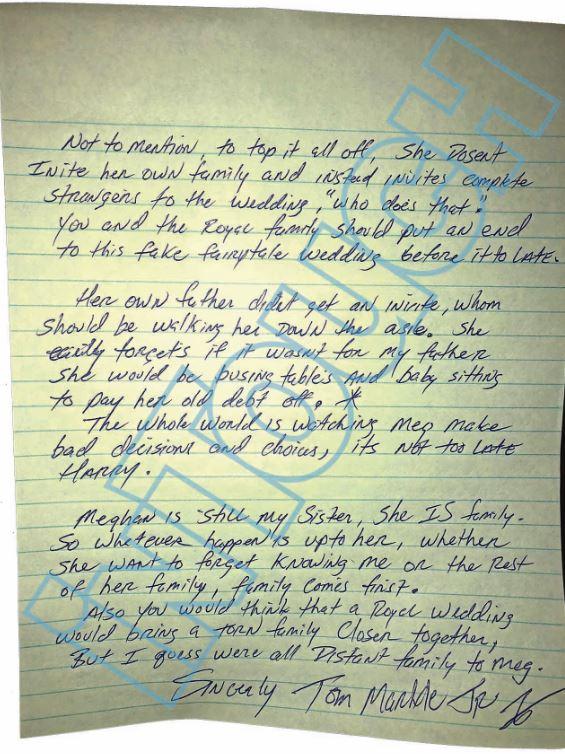 Not to mention, to top it all off, She Dosent
Invite her own family and insted invites complete
strangers to the wedding, "who does that".
You and the Royal family should put an end
to this fake fairytale wedding before it to LATE.
Her own father didnt get an invite, whom
should be walking her Down the asle. She
forgets if it wasnt for my father
she would be busing tables AND baby sitting
to pay her old debt off. *
The whole world is watching Meg make
bad decisions and choices, its NOT too LATE
HARRY.
Meghan is still my Sister, She IS family.
So whatever happen is upto her, whether
she WANT to forget Knowing me or the Rest
of her family, family comes first.
Also you would think that a Royal wedding
would bring a TORN family Closer together,
But I guess were all Distant family to Meg.
Sincerly Tom Markle Jr
inTouch